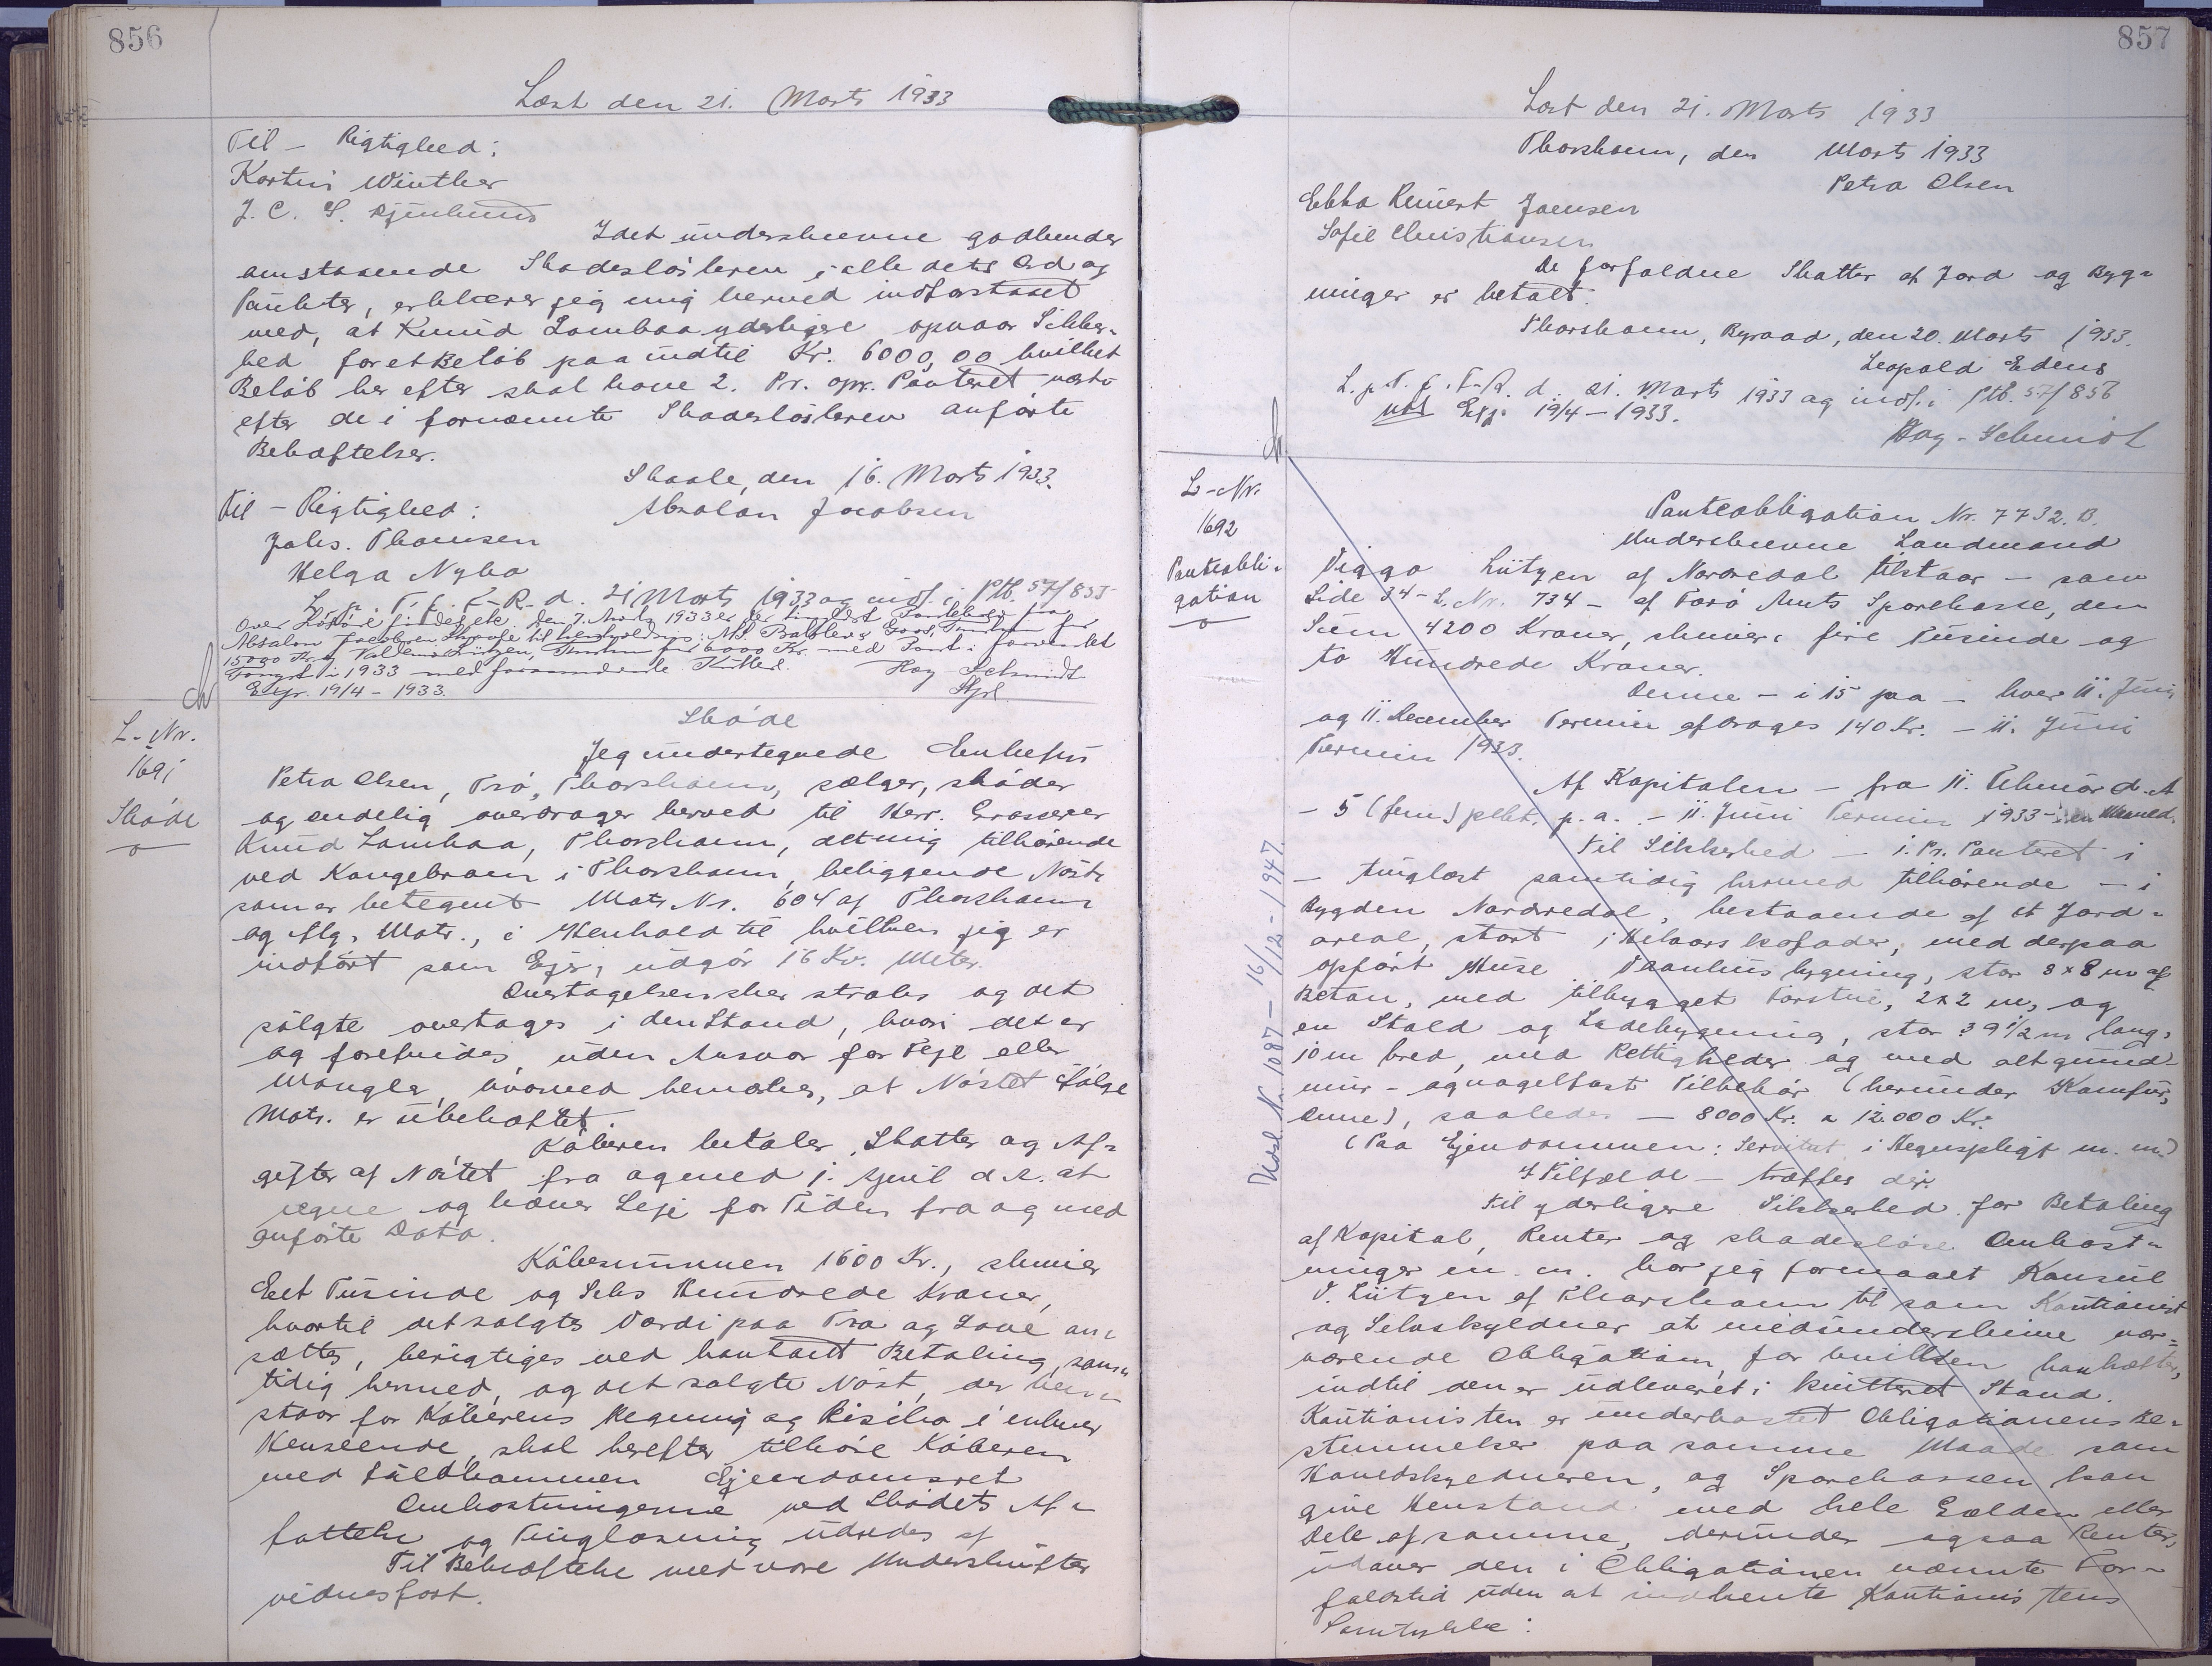 856
Læst den 21. Marts 1933
Til - Rigtighed:
Kartni Winther
J. C. S.
Idet underskrevne godkender
omstaaende Skadesløsbrev i alle dets Ord og
Punkter, erklærer jeg mig herved indforstaaet
med, at Knud Lambaa yderligere opnaar Sikker-
hed for et Beløb paa indtil Kr. 6000,00 hvilket
Beløb her efter skal have 2. Pr. opr. Panteret næst
efter de i fornævnte Skadesløsbrev anførte
Behæftelser.
Skaale, den 16. Marts 1933.
Til - Rigtighed:
Absalon Jacobsen
Johs. Thomsen
Helga Nybo
L. p. T. f. F.-R. d. 21 Marts 1933 og indf. i Ptb. 57/855
den 7. Marts 1933 er der tinglæst Pantebrev fra
Absalon Jacobsen, Skaale til
15000 Kr. og Valdemar Lützen, Thorshavn for 6000 Kr. med Pant i forventet
Fangst i 1933 med forannævnte Kutter.
Hag-Schmidt
Exp. 19/4 - 1933.
L-Nr.
1691
Skøde
Skøde
Jeg undertegnede Enkefru
Petra Olsen, Trø, Thorshavn, sælger, skøder
og endelig overdrager herved til Herr. Grosserer
Knud Lambaa, Thorshavn, det mig tilhørende
ved Kongebroen i Thorshavn, beliggende Nøst,
som er betegnet Matr. Nr. 604 af Thorshavn
og flg. Matr., i Henhold til hvilken jeg er
indført som Ejer, udgør 16 Kv. Meter.
Overtagelsen sker straks og det
solgte overtages i den Stand, hvori det er
og forefindes, uden Ansvar for Fejl eller
Mangler, hvorved bemærkes, at Nøstet ifølge
Matr. er ubehæftet.
Køberen betaler Skatter og Af-
gifter af Nøstet fra og med 1. April d. A. at
regne og hæver Leje for Tiden fra og med
anførte Dato.
Købesummen 1600 Kr., skriver
Eet Tusinde og Seks Hundrede Kroner,
hvortil det solgtes Værdi paa Tro og Love an-
sættes, berigtiges ved kontant Betaling, sam-
tidig hermed, og det solgte Nøst, der hen-
staar for Køberens Regning og Risiko i enhver
Henseende, skal herefter tilhøre Køberen
med fuldkommen Ejendomsret
Omkostningerne ved Skødets Af-
fattelse og Tinglæsning udredes af
Til Bekræftelse med vore Underskrifter
vidnesfast.
857
Læst den 21. Marts 1933
Thorshavn, den Marts 1933
Petra Olsen
Ebba Reinert Joensen
Sofie Christiansen
De forfaldne Skatter af Jord og Byg-
ninger er betalt.
Thorshavn, Byraad, den 20. Marts 1933.
Leopold Edens
L. p. T. f. F.-R. d. 21. Marts 1933 og indf. i Ptb. 57/856
Exp. 19/4 - 1933.
Hag-Schmidt
L-Nr.
1692
Panteobli-
gation
Panteobligation Nr. 7732. B.
Underskrevne Landmand
Viggo Lützen af Nordredal tilstaar - som
Side 24 - L. Nr. 734 - af Færø Amts Sparekasse, den
Sum 4200 Kroner, skriver fire Tusinde og
to Hundrede Kroner.
Denne - i 15 paa - hver 11. Juni
og 11. December Termin afdrages 140 Kr. - 11. Juni
Termin 1933.
Af Kapitalen - fra 11. Februar d. A
- 5 (fem) pCt. p. a. - 11. Juni Termin 1933 -
Til Sikkerhed - 1. Pr. Panteret i
- tinglæst samtidig hermed tilhørende - i
Bygden Nordredal, bestaaende af et Jord-
areal, stort med derpaa
opført Huse. Vaaningsbygning, stor 8 x 8 m af
Beton, med tilbygget Forstue, 2 x 2 m, og
en Stald og Ladebygning, stor 39 1/2 m lang,
10 m bred, med Rettigheder og med alt grund-
mur- og nagelfast Tilbehør (herunder Komfur,
Ovne), saaledes - 8000 Kr. a 12.000 Kr.
(Paa Ejendommen: Servitut i Hegnspligt m. m.)
I Tilfælde - træffes der.
Til yderligere Sikkerhed for Betaling
af Kapital, Renter og skadesløse Omkost-
ninger m. m. har jeg formaaet Konsul
V. Lützen af Thorshavn til som Kautionist
og Selvskyldner at medunderskrive nær-
værende Obligation, for hvilken han hæfter,
indtil den er udleveret i kvitteret Stand.
Kautionisten er underkastet Obligationens Be-
stemmelser paa samme Maade som
Hovedskyldneren, og Sparekassen kan
give Henstand med hele Gælden eller
Dele af samme, derunder ogsaa Renter,
udover den i Obligationen nævnte For-
faldstid uden at indhente Kautionistens
Samtykke:
Diesl. Nr. 1087 - 16/12 - 1947